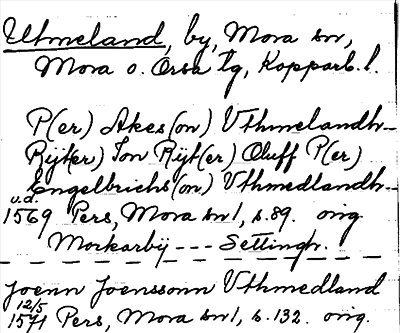 Utmeland, by, Mora sn,
Mora o. Orsa tg, Kopparb. l.
P(er) Akes(on) Vthmelandh--
Ryt(er) Jon Ryt(er) Oluff P(er)
Engelbrichs(on) Vthmedlandh--
u.d.
1569 Pers, Mora sn 1, s. 89. orig
Morkarby --- Settingh.
Joenn Joenssonn Vthmedland
12/5
1571 Pers, Mora sn 1, s. 132. orig.